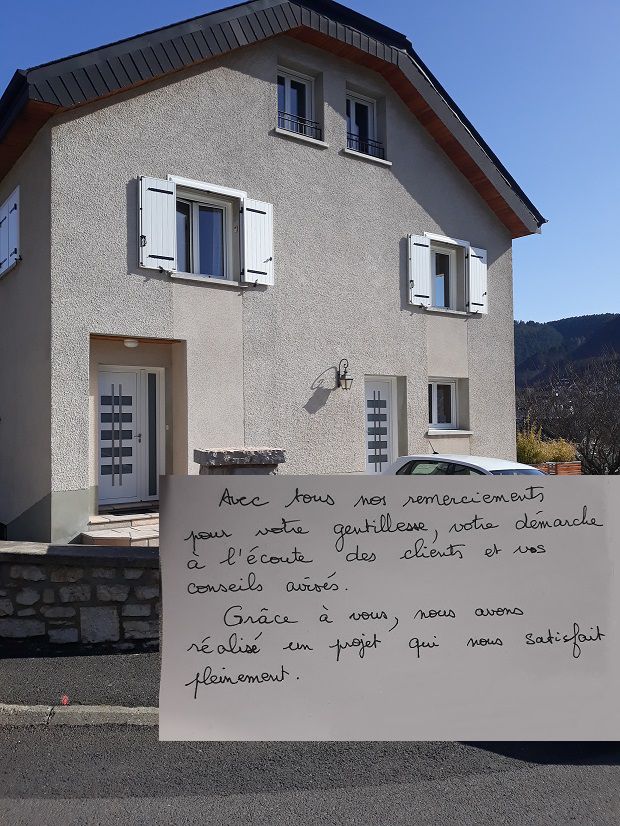 Avec tous nos remerciements
pour votre gentillesse, votre démarche
à l'écoute des clients et vos
conseils avisés.
Grâce à vous, nous avons
réalisé un projet qui nous satisfait
pleinement.